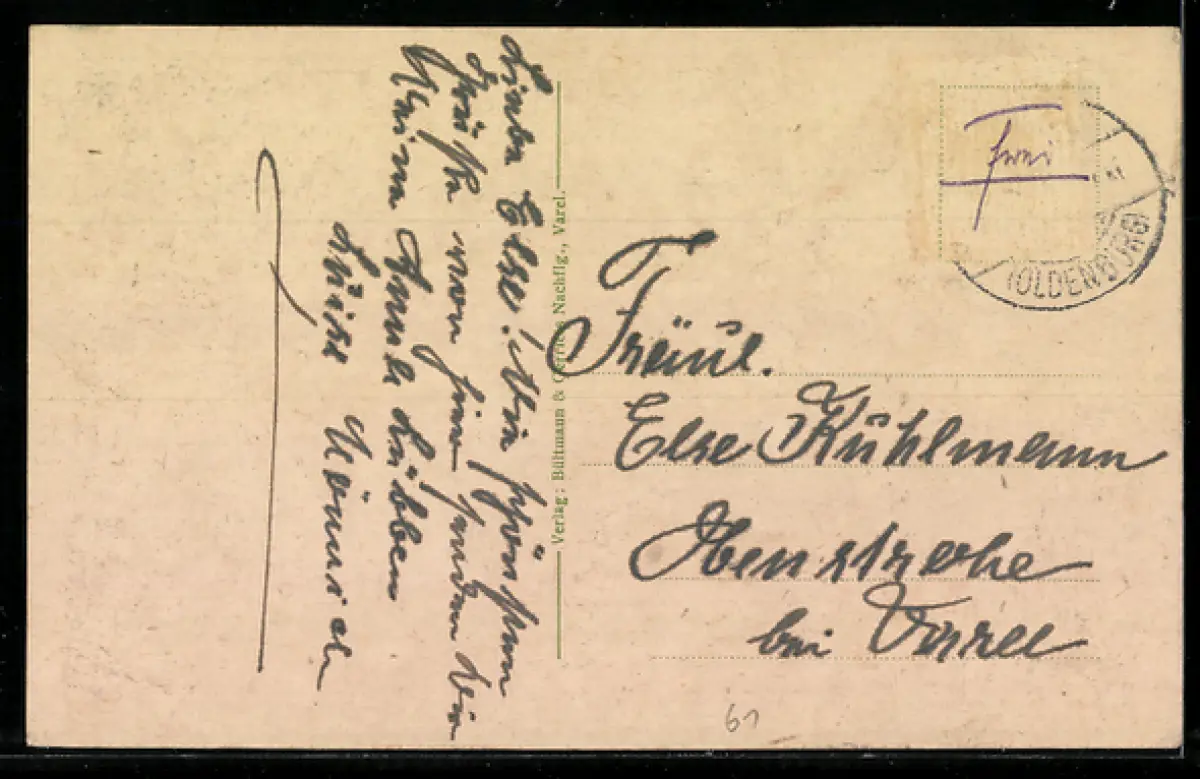 Liebe Else! Die schönsten
Grüße von hier senden dir
Anna Lübben
Luise
Verlag: Bültmann & Gerriets Nachflg., Varel.
frei
(OLDENBURG)
Fräul.
Else Kühlmann
Obenstrohe
bei Varel
61